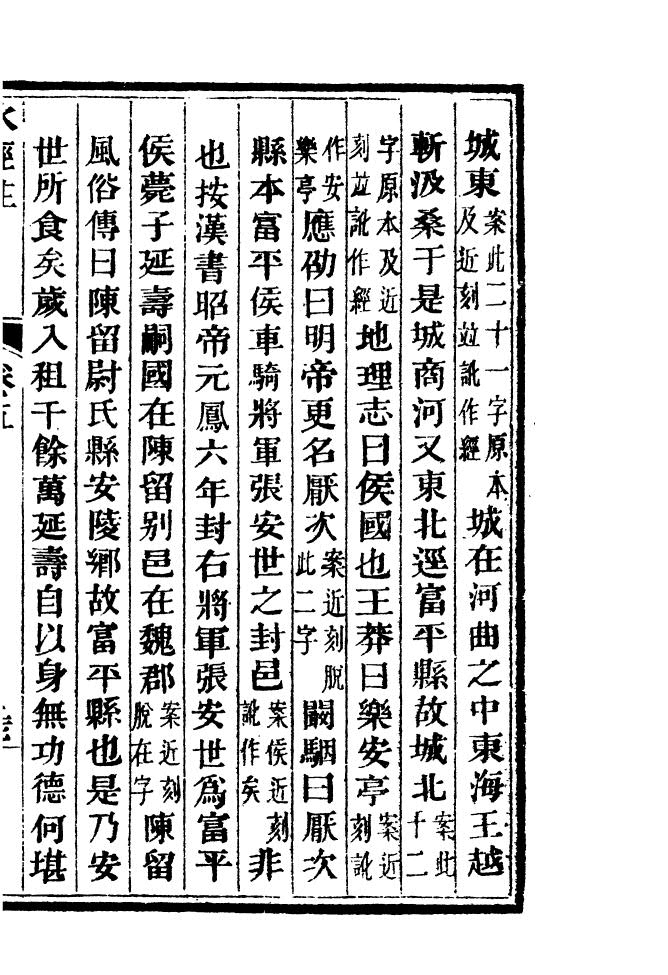 城東案此二十一字原本及近刻竝訛作經城在河曲之中東海王越
斬汲桑于是城商河又東北逕富平縣故城北案此十二
字原本及近刻竝訛作經地理志曰侯國也王莽曰樂安亭案近刻訛
作安樂亭應劭曰明帝更名厭次案近刻脫此二字闞駰曰厭次
縣本富平侯車騎將軍張安世之封邑案侯近刻訛作矣非
也按漢書昭帝元鳳六年封右將軍張安世爲富平
侯薨子延壽嗣國在陳留别邑在魏郡案近刻脫在字陳留
風俗傳曰陳留尉氏縣安陵鄉故富平縣也是乃安
世所食矣歲入租千餘萬延壽自以身無功德何堪
水經注 卷五